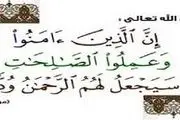 الله تعالى :
إِنَّ ٱلَّذِينَ ءَامَنُوا۟
وَعَمِلُوا۟ ٱلصَّـٰلِحَـٰتِ
سَيَجْعَلُ لَهُمُ ٱلرَّحْمَـٰنُ